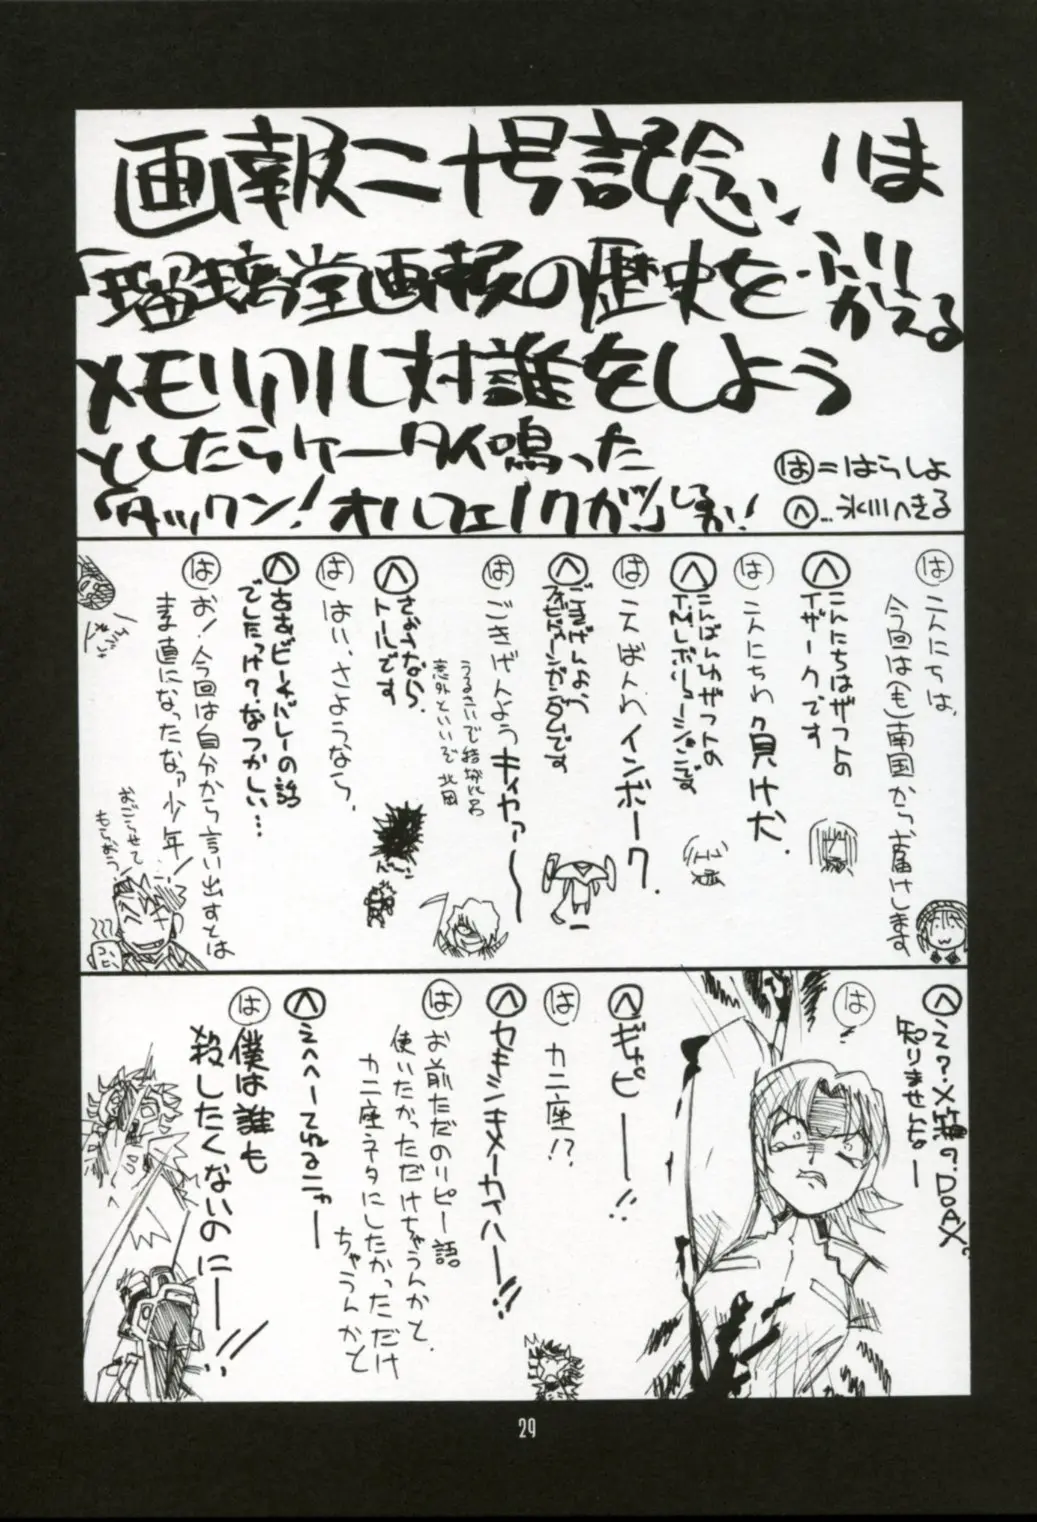 画報二十号記念、いま
「瑠璃堂画報の歴史をふりかえる
メモリアル対談をしよう
としたらケータイ鳴った
タックン！オルフェノクがッ」しるか！
は＝はらしよ
へ…氷川へきる
は こんにちは、
今回は(も)南国からお届けします
へ こんにちはザフトの
イザークです
は こんにちわ負け犬．
へ こんばんはザフトの
は こんばんわインボーク．
へ ごきげんよう
は ごきげんようキィヤァ〜
うるさいで結城代名
意外といいで北田
へ さようなら、
トールです
は はい、さようなら、
へ ああビーチバレーの話
でしたっけ？なつかしい…
は お！今回は自分から言い出すとは
素直になったなァ少年！
おごらせて
もらおう
へ え？×箱の？DOAX？
知りませんよー
は ！
へ ギャピーー！！
は カニ座！？
へ セキシキメーカイハー！！
は お前ただのリピー語
使いたかっただけちゃうんかと、
カニ座ネタにしたかっただけ
ちゃうんかと
へ えへへーてゅるニャー
は 僕は誰も
殺したくないのにー！！
29